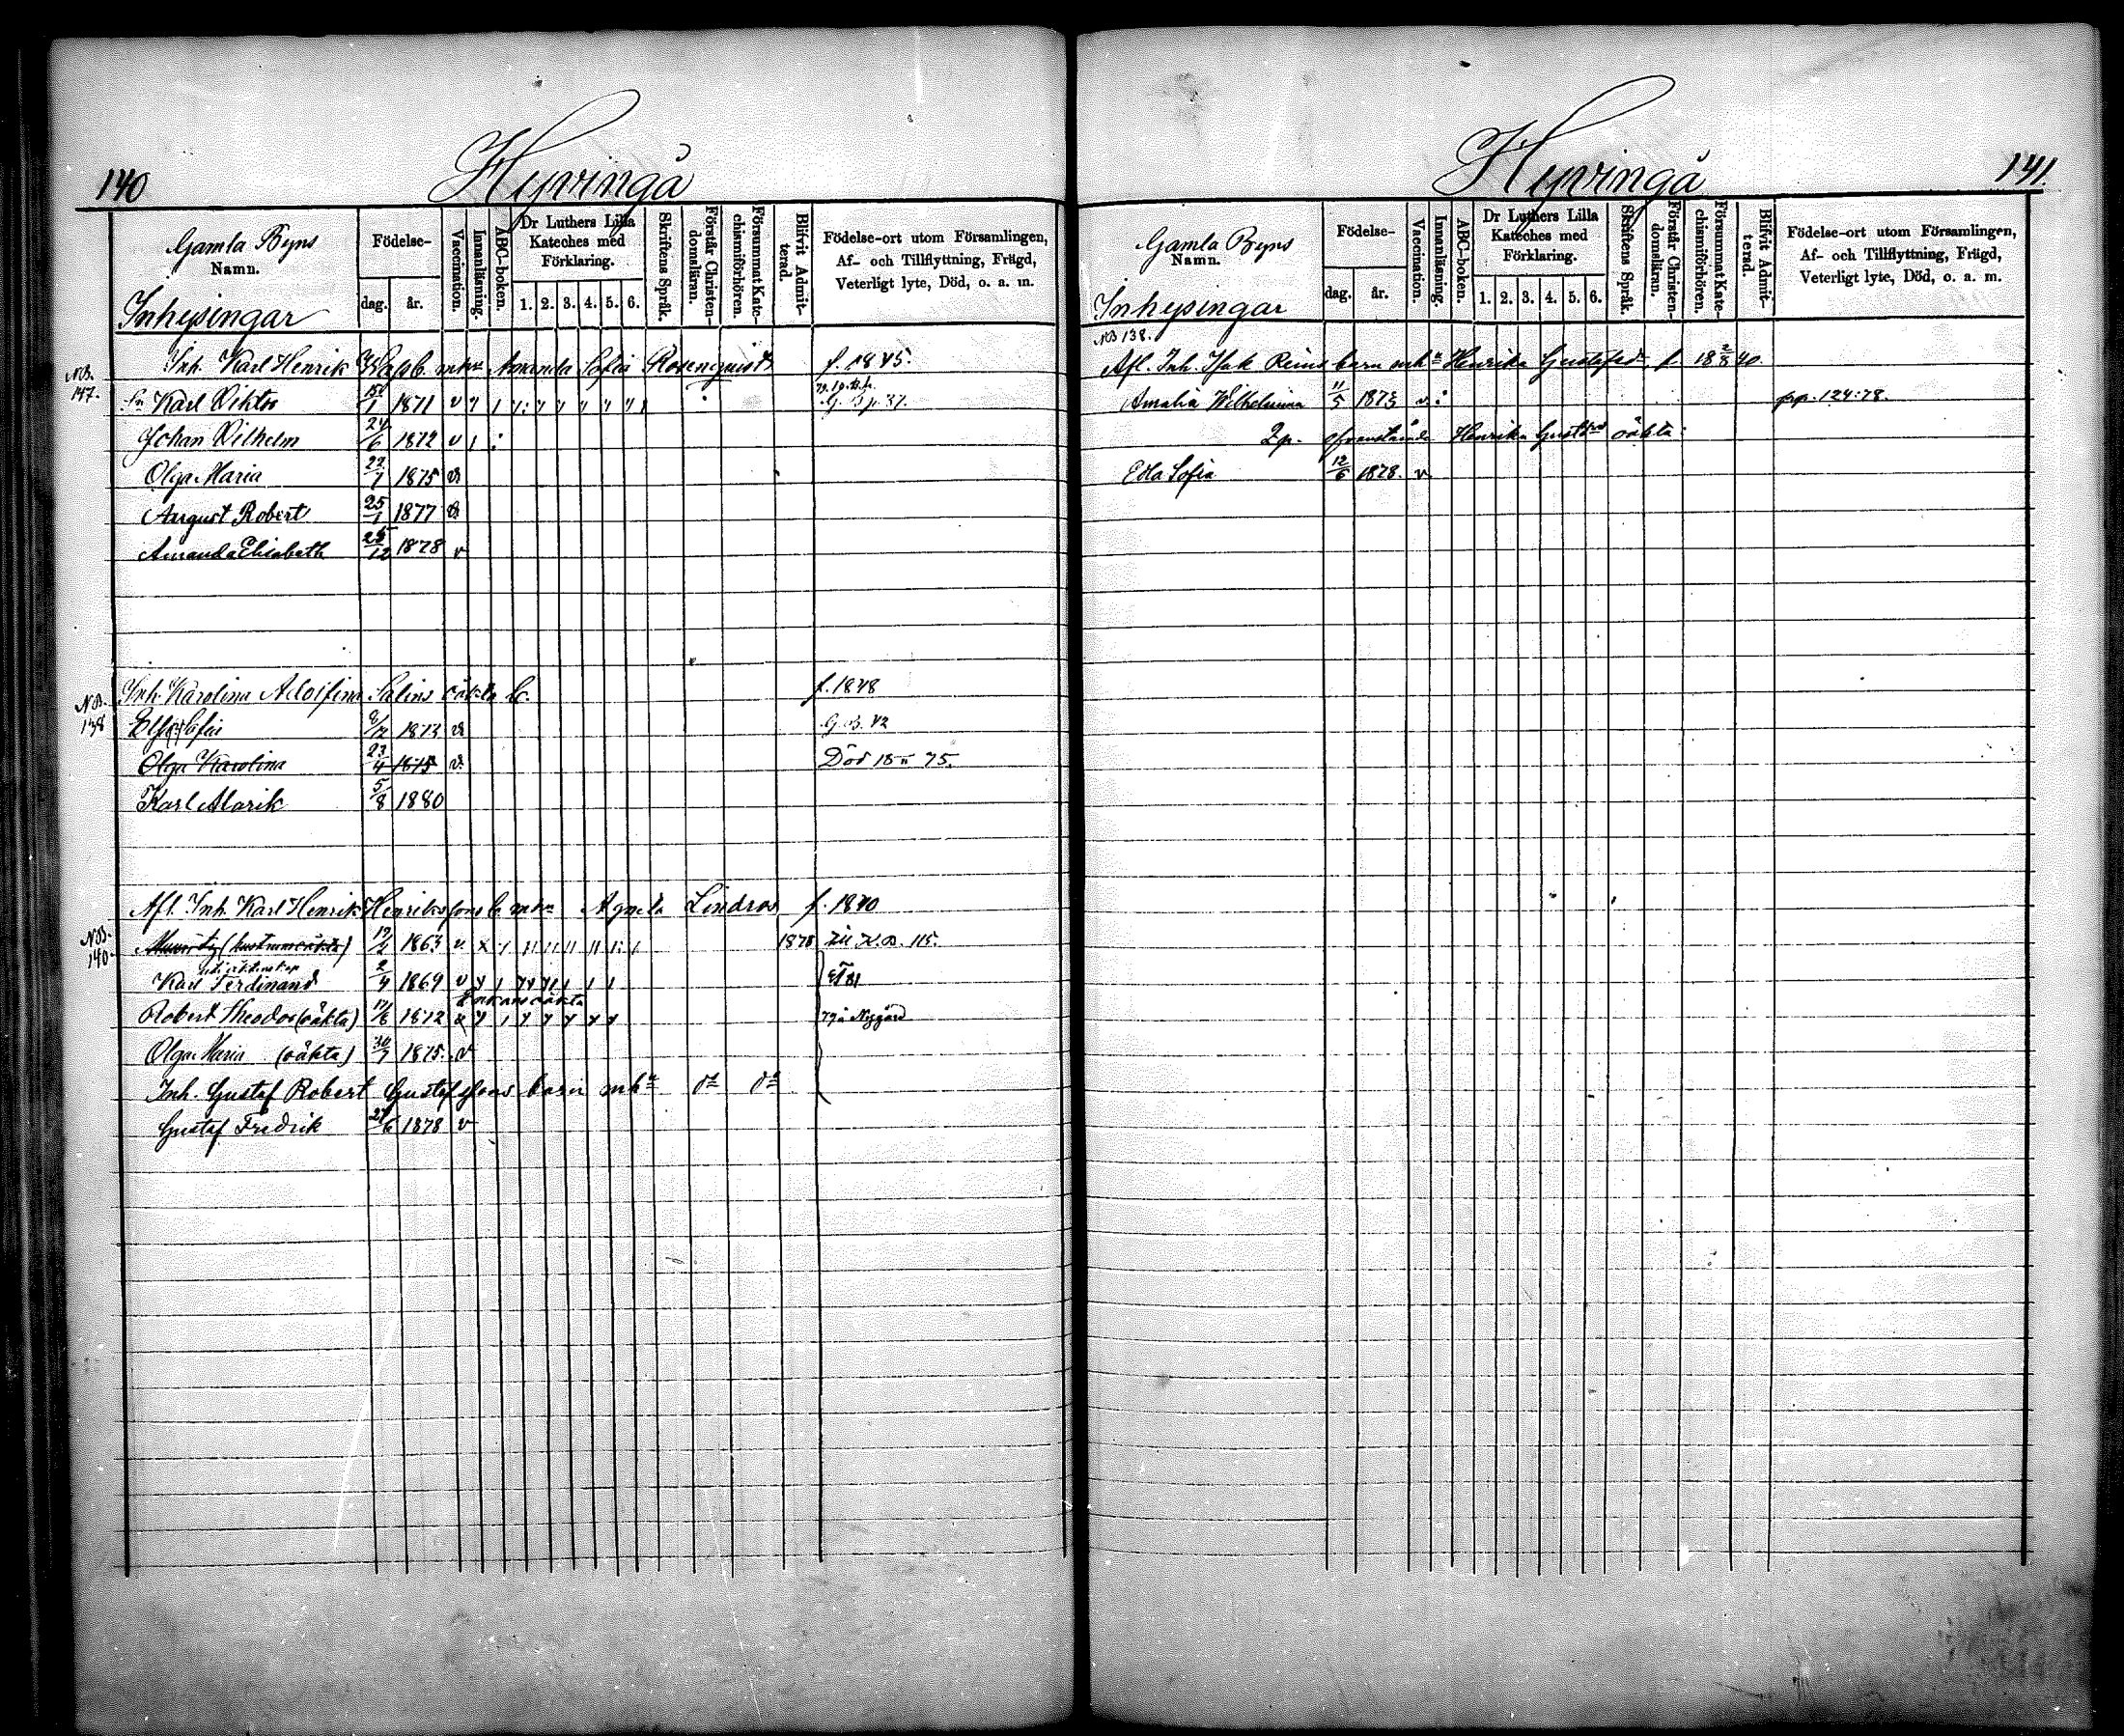 140
Hyvingå
Gamla Byns
Namn.
Inhysingar
Födelse-
dag.
år.
Vaccination.
Innanläsning.
ABC-boken.
Dr Luthers Lilla
Kateches med
Förklaring.
1. 2. 3. 4. 5. 6.
Skriftens Språk.
Förstår Christen-
domsläran.
Försummat Kate-
chismiförhören.
Blifvit Admit-
terad.
Födelse-ort utom Församlingen,
Af- och Tillflyttning, Frägd,
Veterligt lyte, Död, o. a. m.
NB. 147.
Inh. Karl Henrik b. mhu Amanda Sofia Rosenqvist f. 1845.
Karl Viktor 1 1871 v
Johan Vilhelm 24/6 1872 v
Olga Maria 1875 v
August Robert 25/1 1877 v
Amanda Elisabeth 25/12 1878 v
NB. 138
Inh. Karolina Adolfina Salins oäkta b. f. 1848
Sofia 1873 v G.B. 42
Olga Karolina 23/4 1875 v Död 75.
Karl Alarik 5/8 1880
NB. 140.
Afl. Inh. Karl Henrik Henrikssons b. mhu Agneta Lindros f. 1840
1863 v 1878 till K.B. 115.
Karl Ferdinand 2/4 1869 v
Robert Theodor (oäkta) 1872 Nygård
Olga Maria (oäkta) 30/7 1875. v
Inh. Gustaf Robert Gustafssons barn mhu do do
Gustaf Fredrik 6 1878 v
141.
Hyvingå
Gamla Byns
Namn.
Inhysingar
Födelse-
dag.
år.
Vaccination.
Innanläsning.
ABC-boken.
Dr Luthers Lilla
Kateches med
Förklaring.
1. 2. 3. 4. 5. 6.
Skriftens Språk.
Förstår Christen-
domsläran.
Försummat Kate-
chismiförhören.
Blifvit Admit-
terad.
Födelse-ort utom Församlingen,
Af- och Tillflyttning, Frägd,
Veterligt lyte, Död, o. a. m.
NB 138.
Afl. Inh. Isak Reins barn mhu Henrika Gustafsdr f. 18 2/8 40.
Amalia Wilhelmina 11/5 1873 v. pp. 124:78.
Henrika oäkta
Edla Sofia 12/6 1878. v.